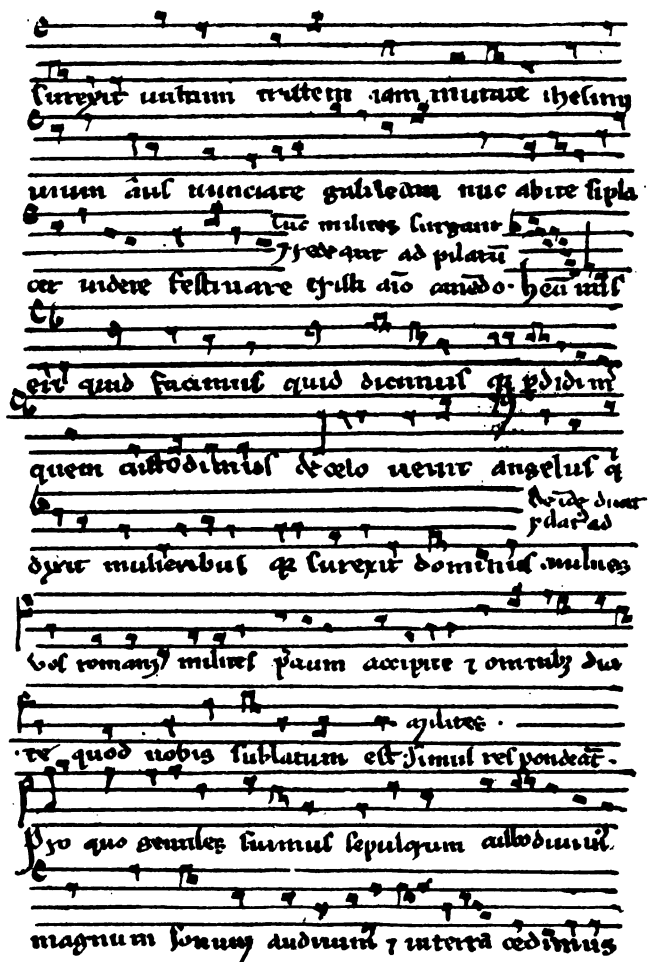 surexit vultum tristem iam mutate ihesum
vivum aīus nunciate galileam nūc abite si pla
Tūc milites surgant
⁊ redeant ad pilatū
cet videre festinare cristi aīo amēdo. heū mis
eri quid facimus quid dicimus qꝛ ꝑdidim᷒
quem custodimus de celo venit angelus q̄
Deīde dicat
pilat᷒ ad
dixit mulieribus qꝛ surexit dominus. milites
vos romani milites p̄cium accipite ⁊ omnibꝫ dici
te quod vobis sublatum est. Simul respondeāt.
milites.
Pro quo gentiles fuimus sepulcrum custodivim᷒.
magnum sonum audivim᷒ ⁊ in terrā cedimus